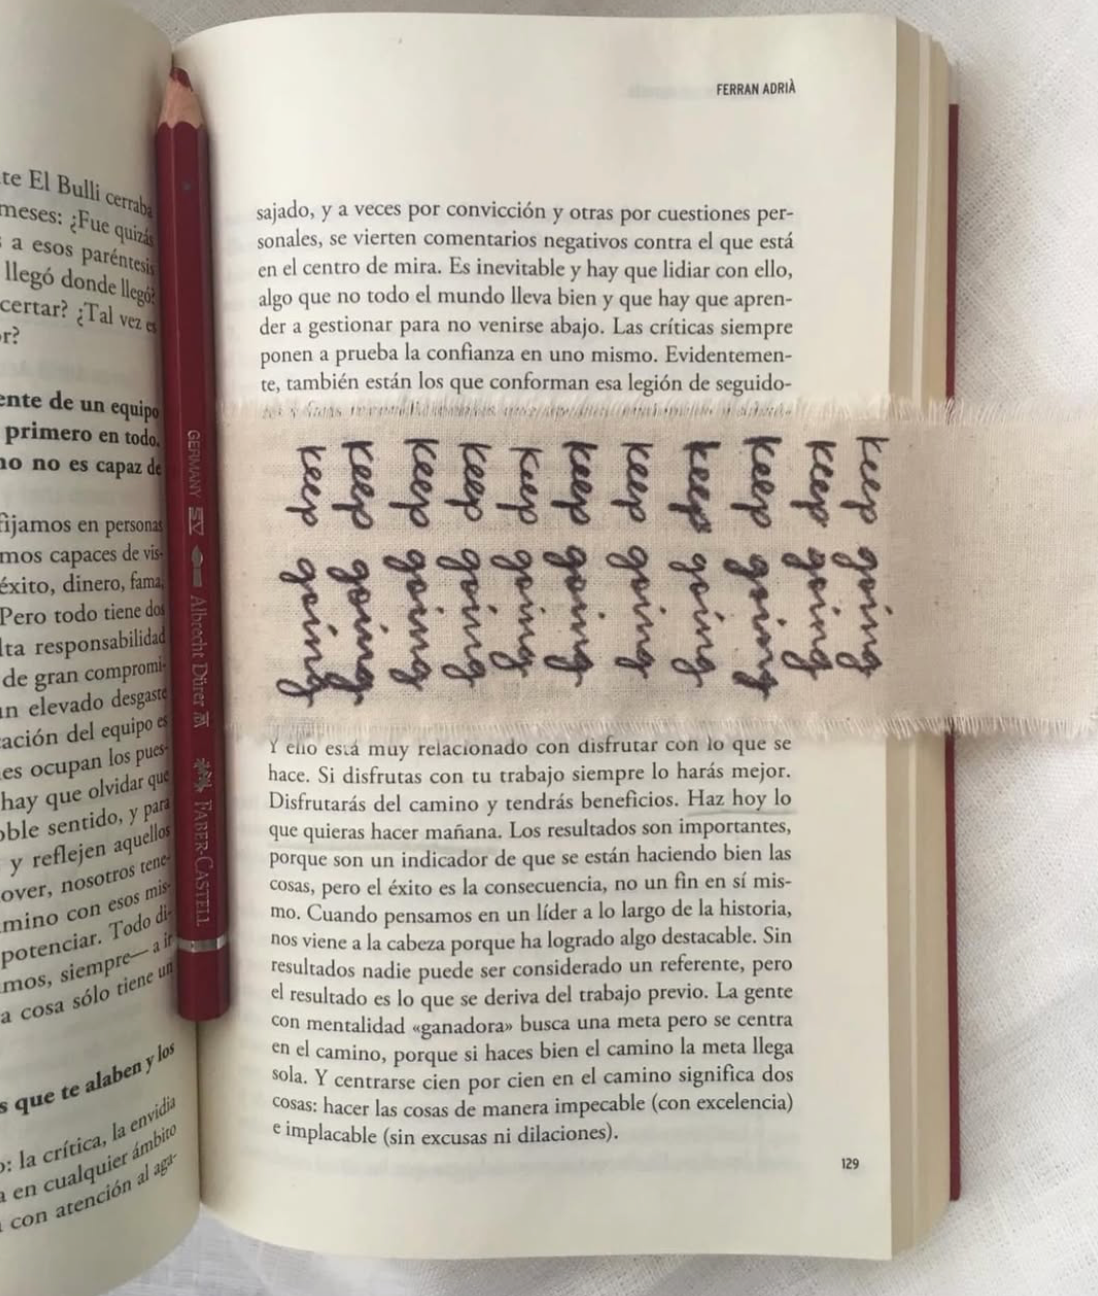 te El Bulli cerraba
meses: ¿Fue quizás
a esos paréntesis
llegó donde llegó?
certar? ¿Tal vez es
r?
ente de un equipo
primero en todo.
no no es capaz de
fijamos en personas
mos capaces de vis-
éxito, dinero, fama,
Pero todo tiene dos
lta responsabilidad
de gran compromi-
un elevado desgaste
ación del equipo es
es ocupan los pues-
hay que olvidar que
oble sentido, y para
y reflejen aquellos
over, nosotros tene-
mino con esos mis-
potenciar. Todo di-
mos, siempre— a ir
a cosa sólo tiene un
s que te alaben y los
o: la crítica, la envidia
a en cualquier ámbito
con atención al aga-
GERMANY SV Albrecht Dürer FABER-CASTELL
FERRAN ADRIÀ
sajado, y a veces por convicción y otras por cuestiones per-
sonales, se vierten comentarios negativos contra el que está
en el centro de mira. Es inevitable y hay que lidiar con ello,
algo que no todo el mundo lleva bien y que hay que apren-
der a gestionar para no venirse abajo. Las críticas siempre
ponen a prueba la confianza en uno mismo. Evidentemen-
te, también están los que conforman esa legión de seguido-
keep going
keep going
keep going
keep going
keep going
keep going
keep going
keep going
keep going
keep going
keep going
Y ello está muy relacionado con disfrutar con lo que se
hace. Si disfrutas con tu trabajo siempre lo harás mejor.
Disfrutarás del camino y tendrás beneficios. Haz hoy lo
que quieras hacer mañana. Los resultados son importantes,
porque son un indicador de que se están haciendo bien las
cosas, pero el éxito es la consecuencia, no un fin en sí mis-
mo. Cuando pensamos en un líder a lo largo de la historia,
nos viene a la cabeza porque ha logrado algo destacable. Sin
resultados nadie puede ser considerado un referente, pero
el resultado es lo que se deriva del trabajo previo. La gente
con mentalidad «ganadora» busca una meta pero se centra
en el camino, porque si haces bien el camino la meta llega
sola. Y centrarse cien por cien en el camino significa dos
cosas: hacer las cosas de manera impecable (con excelencia)
e implacable (sin excusas ni dilaciones).
129